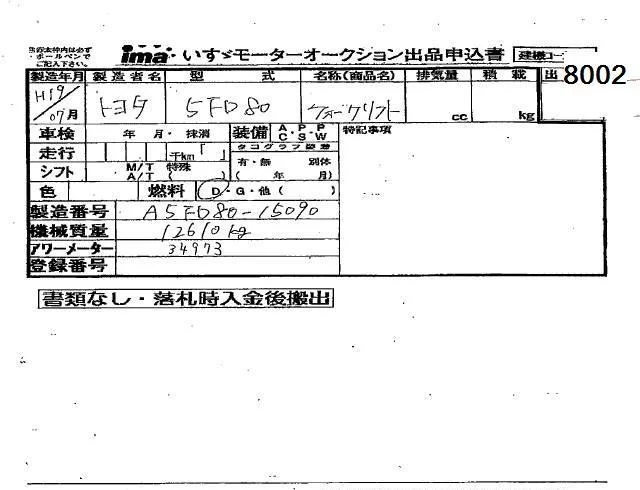 ※赤太枠内は必ず
・ボールペンで
ご記入下さい。
ima いすゞモーターオークション出品申込書 建機コー
出 8002
製造年月 製造者名 型 式 名称(商品名) 排気量 積 載
H19/07月 トヨタ 5FD80 フォークリフト cc kg
車検 年 月・抹消 装備 A・P・P C・S・W 特記事項
走行 千km「 」 タコグラフ装着
シフト M/T A/T 特殊( ) 有・無 別体 ( 年 月)
色 燃料 D・G・他( )
製造番号 A5FD80-15090
機械質量 12610kg
アワーメーター 34973
登録番号
書類なし・落札時入金後搬出